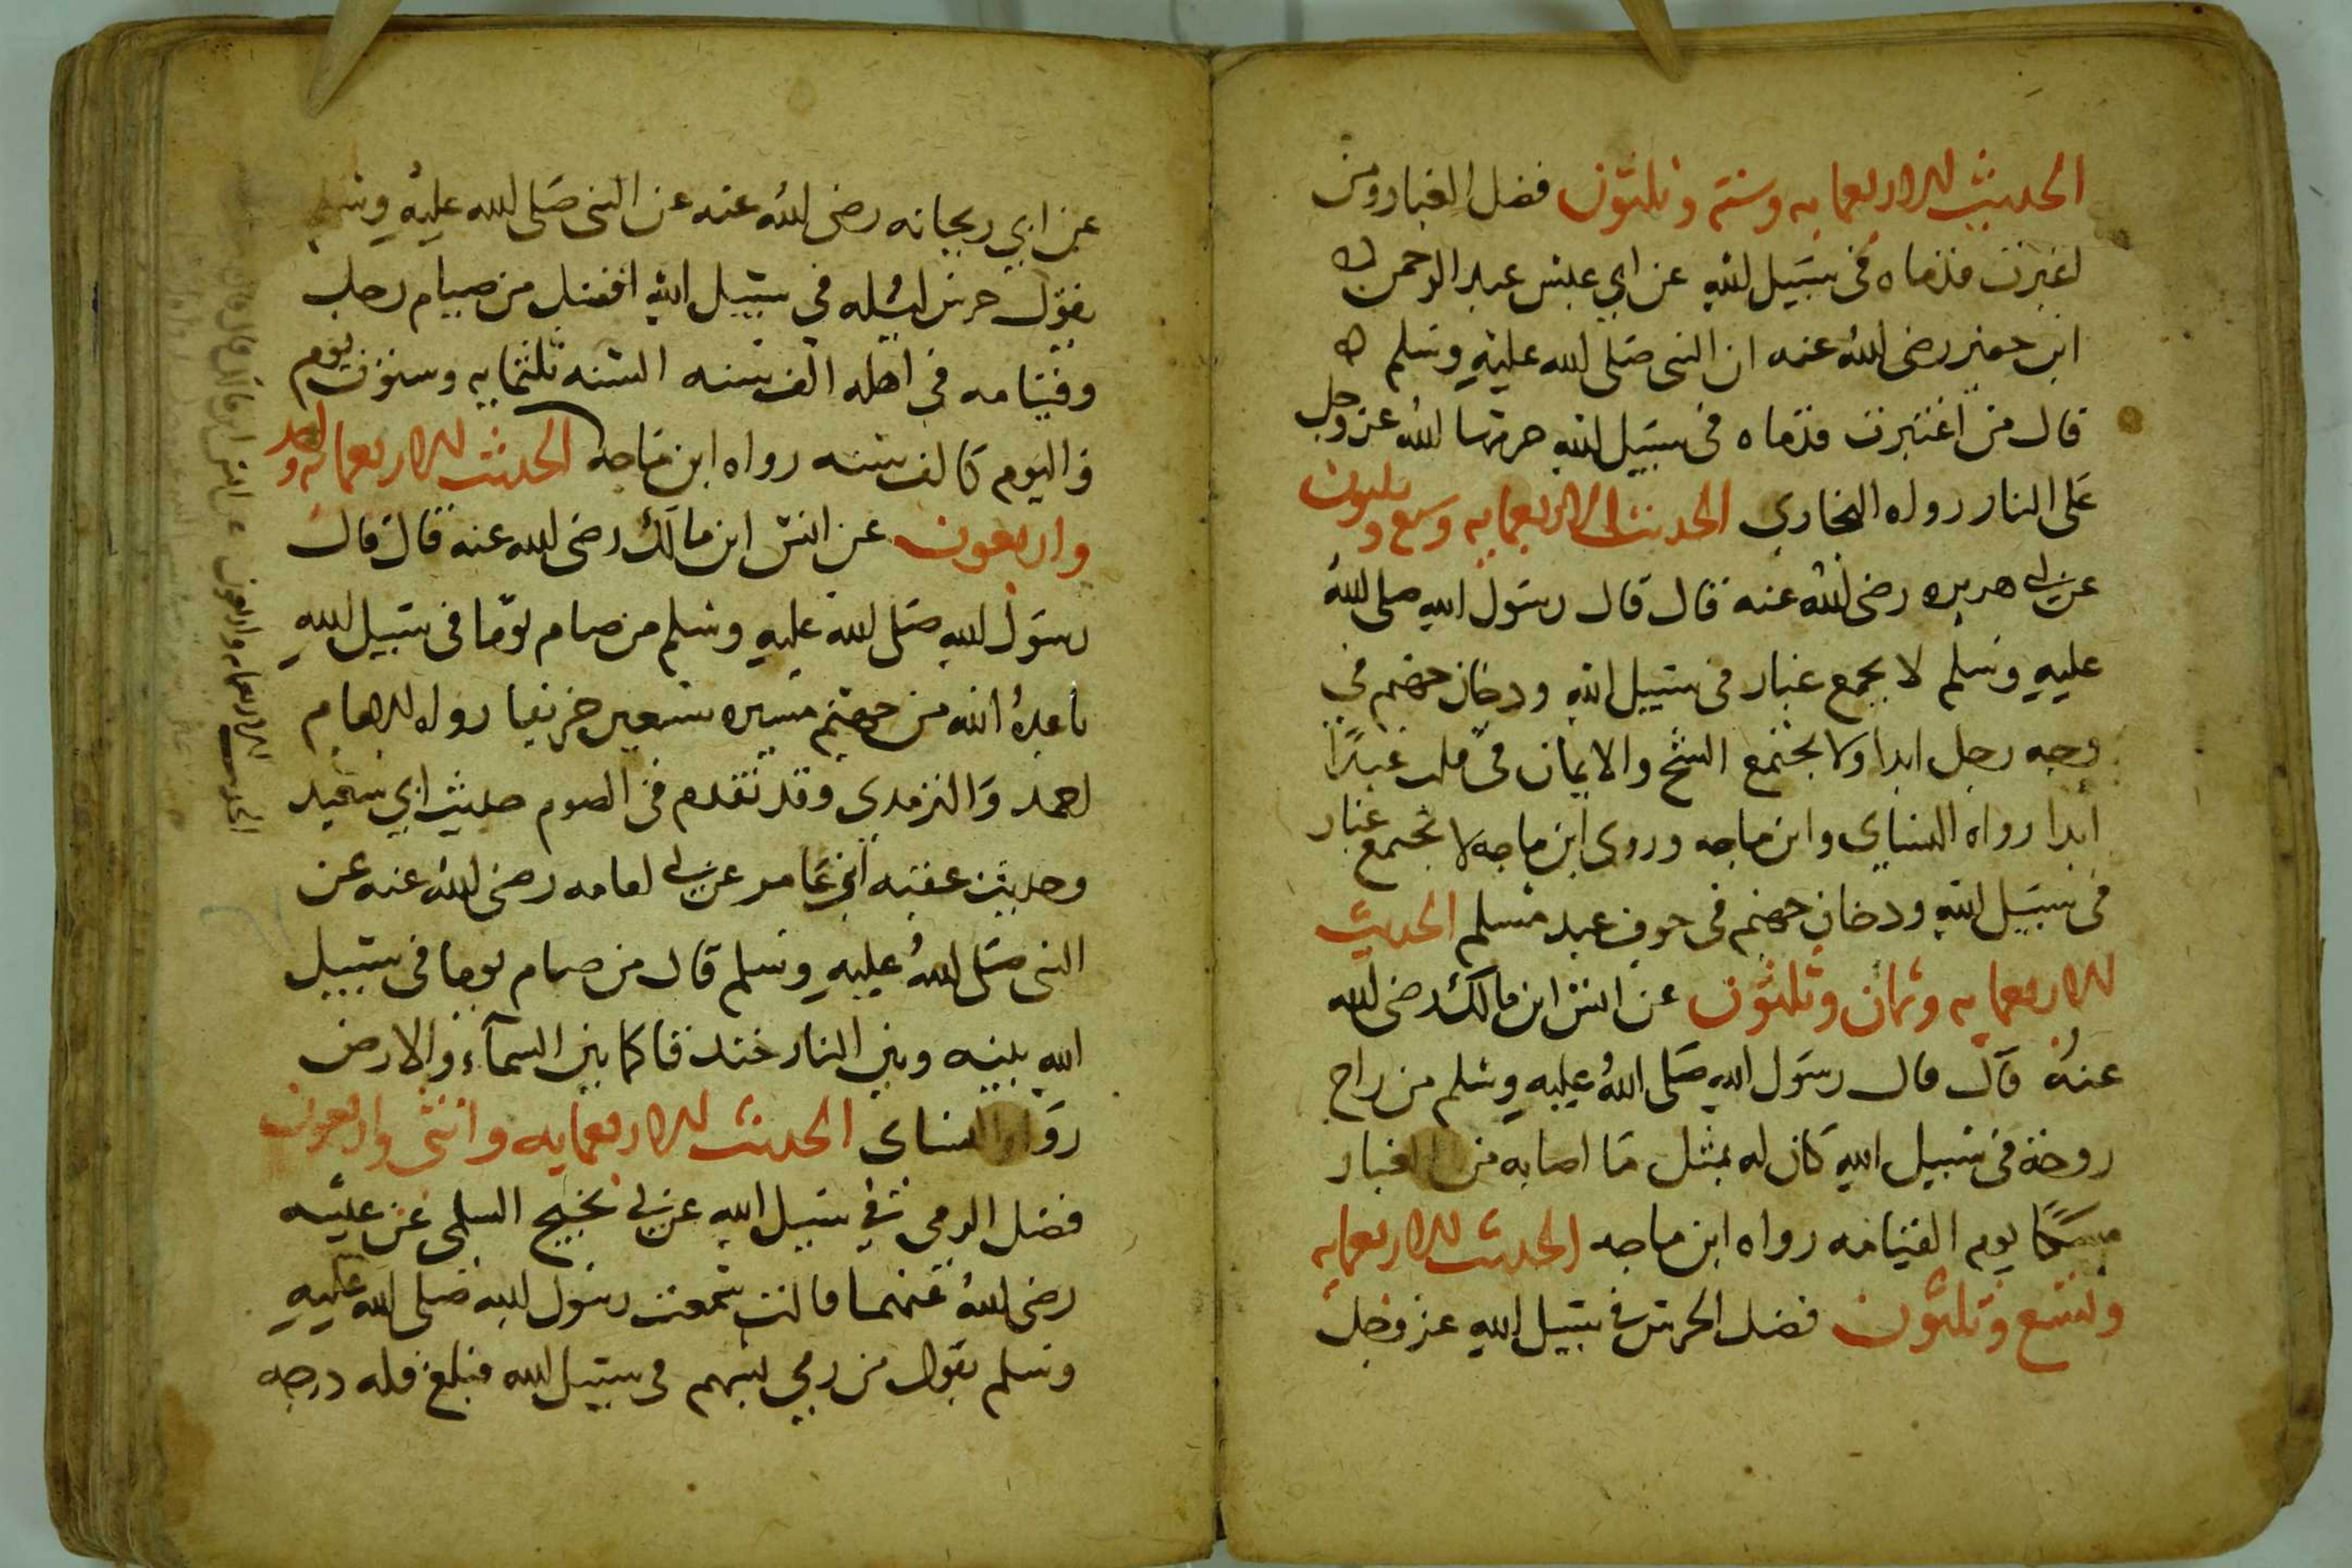 الحديث الاربعمايه وستة وثلثون فضل الغبار ومن
اغبرت قدماه في سبيل الله عن ابي عبس عبد الرحمن
ابن جبير رضي الله عنه ان النبي صلى الله عليه وسلم
قال من اغبرت قدماه في سبيل الله حرمهما الله عز وجل
على النار رواه البخاري الحديث الاربعمايه وسبع وثلثون
عن ابي هريره رضي الله عنه قال قال رسول الله صلى الله
عليه وسلم لا يجمع غبار في سبيل الله ودخان جهنم في
وجه رجل ابدا ولا يجتمع الشح والايمان في قلب عبد
ابدا رواه النساي وابن ماجه وروى ابن ماجه لا يجتمع غبار
في سبيل الله ودخان جهنم في جوف عبد مسلم الحديث
الاربعمايه وثمان وثلثون عن انس ابن مالك رضي الله
عنه قال قال رسول الله صلى الله عليه وسلم من راح
روحة في سبيل الله كان له بمثل ما اصابه من الغبار
مسكا يوم القيامه رواه ابن ماجه الحديث الاربعمايه
وتسع وثلثون فضل الحرس في سبيل الله عز وجل
عن ابي ريحانه رضي الله عنه عن النبي صلى الله عليه وسلم
يقول حرس ليله في سبيل الله افضل من صيام رجل
وقيامه في اهله الف سنه السنه ثلثمايه وستون يوم
واليوم كالف سنه رواه ابن ماجه الحديث الاربعمايه واحد
واربعون عن انس ابن مالك رضي الله عنه قال قال
رسول الله صلى الله عليه وسلم من صام يوما في سبيل الله
باعده الله من جهنم مسيره سبعين خريفا رواه الامام
احمد والترمدي وقد تقدم في الصوم حديث ابي سعيد
وحديث عقبه ابن عامر عن ابي امامه رضي الله عنه عن
النبي صلى الله عليه وسلم قال من صام يوما في سبيل
الله بينه وبين النار خندقا كما بين السماء والارض
رواه النساي الحديث الاربعمايه واثنى واربعون
فضل الرمي في سبيل الله عن ابي نجيح السلمي عن
رضي الله عنهما قالت سمعت رسول الله صلى الله عليه
وسلم يقول من رمى بسهم في سبيل الله فبلغ فله درجه
الحديث الاربعمايه واربعون عن انس ابن مالك قال قال